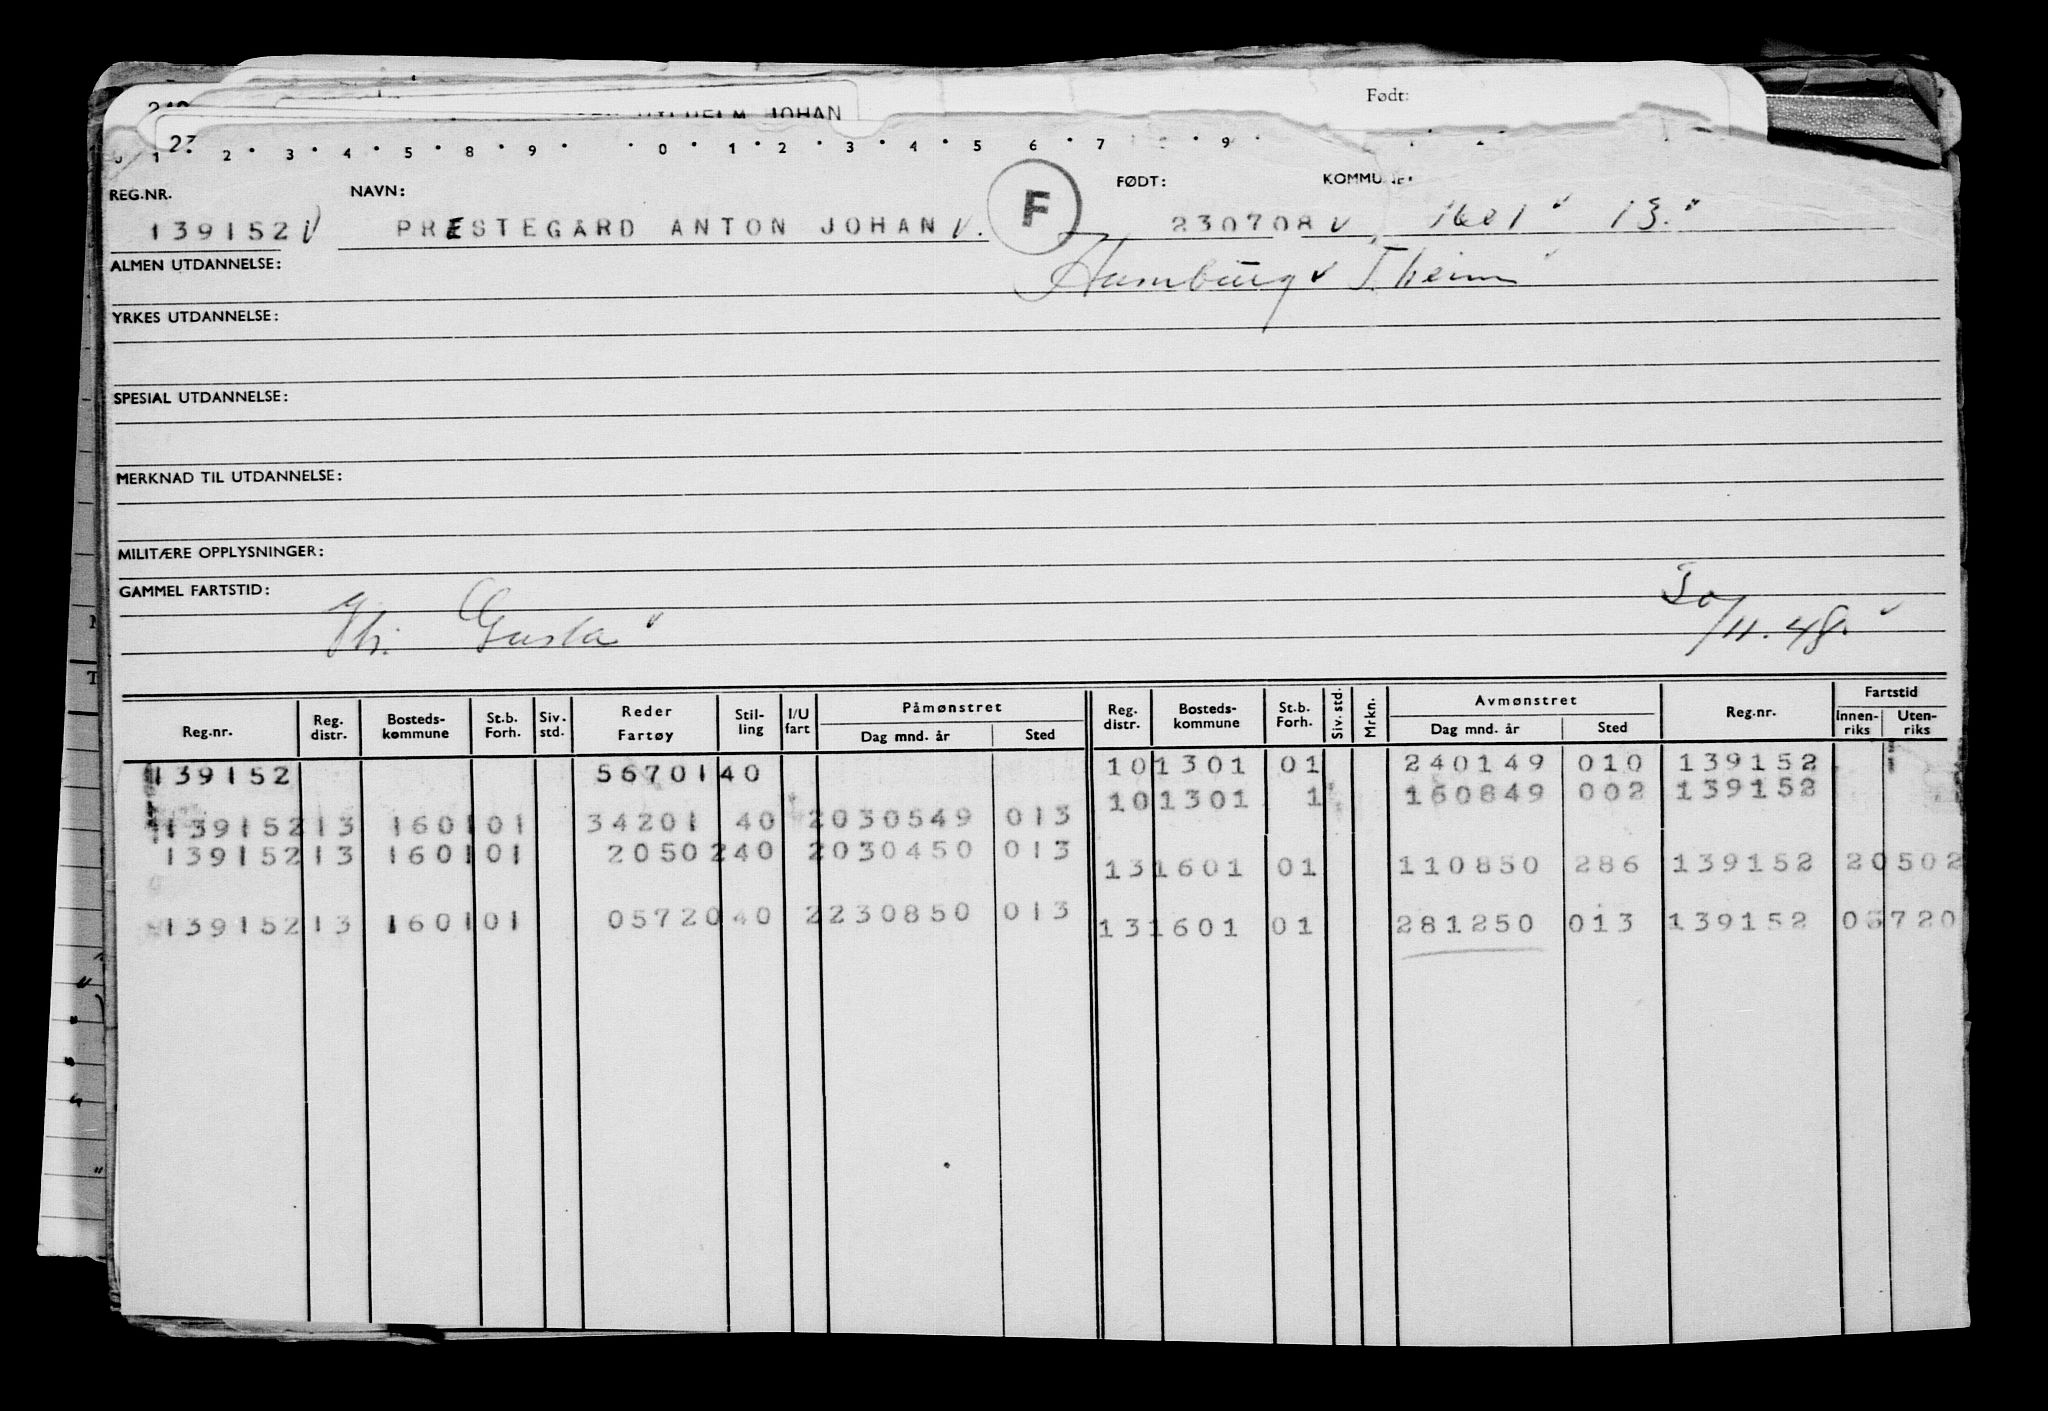 Født:
WILHELM JOHAN
23
0 1 2 3 4 5 8 9 0 1 2 3 4 5 6 7 9
REG.NR. NAVN: FØDT: KOMMUNE:
139152 V PRESTEGARD ANTON JOHAN V. F 230708 V 1601 " 13. "
ALMEN UTDANNELSE: Hamburg V T.heim
YRKES UTDANNELSE:
SPESIAL UTDANNELSE:
MERKNAD TIL UTDANNELSE:
MILITÆRE OPPLYSNINGER:
GAMMEL FARTSTID:
/11. 48.
Reg.nr. Reg. distr. Bosteds-kommune St.b. Forh. Siv. std. Reder Fartøy Stil-ling I/U fart Påmønstret Dag mnd. år Sted Reg. distr. Bosteds-kommune St.b. Forh. Siv. std. Mrkn. Avmønstret Dag mnd. år Sted Reg.nr. Fartstid Innen-riks Uten-riks
139152 56701 40 10 1301 01 240149 010 139152
10 1301 1 160849 002 139152
139152 13 1601 01 34201 40 2 030549 013
139152 13 1601 01 20502 40 2 030450 013 13 1601 01 110850 286 139152 20502
139152 13 1601 01 05720 40 2 230850 013 13 1601 01 281250 013 139152 05720